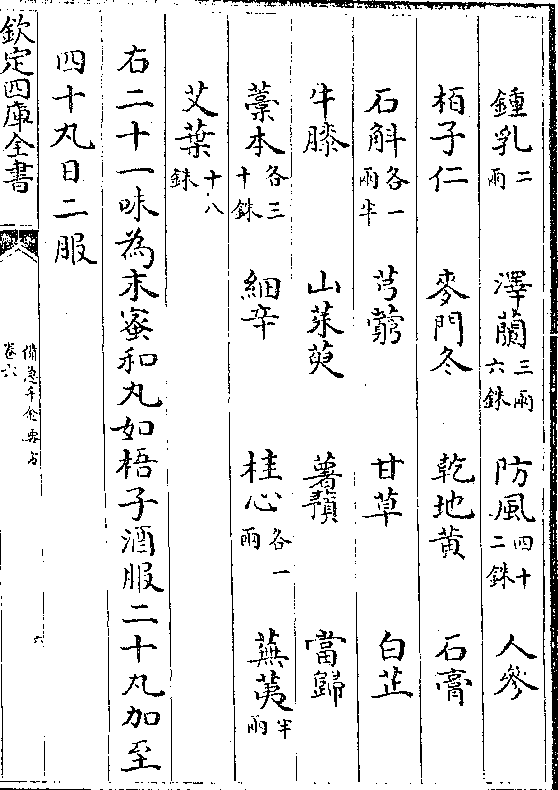 鍾乳二兩 澤蘭三兩六銖 防風四十二銖 人參
栢子仁 麥門冬 乾地黄 石膏
石斛各一兩半 芎藭 甘草 白芷
牛膝 山茱萸 薯蕷 當歸
藁本各三十銖 細辛 桂心各一兩 蕪荑半兩
艾葉十八銖
右二十一味為末蜜和丸如梧子酒服二十丸加至
四十丸日二服
欽定四庫全書
備急千金要方
卷六
六